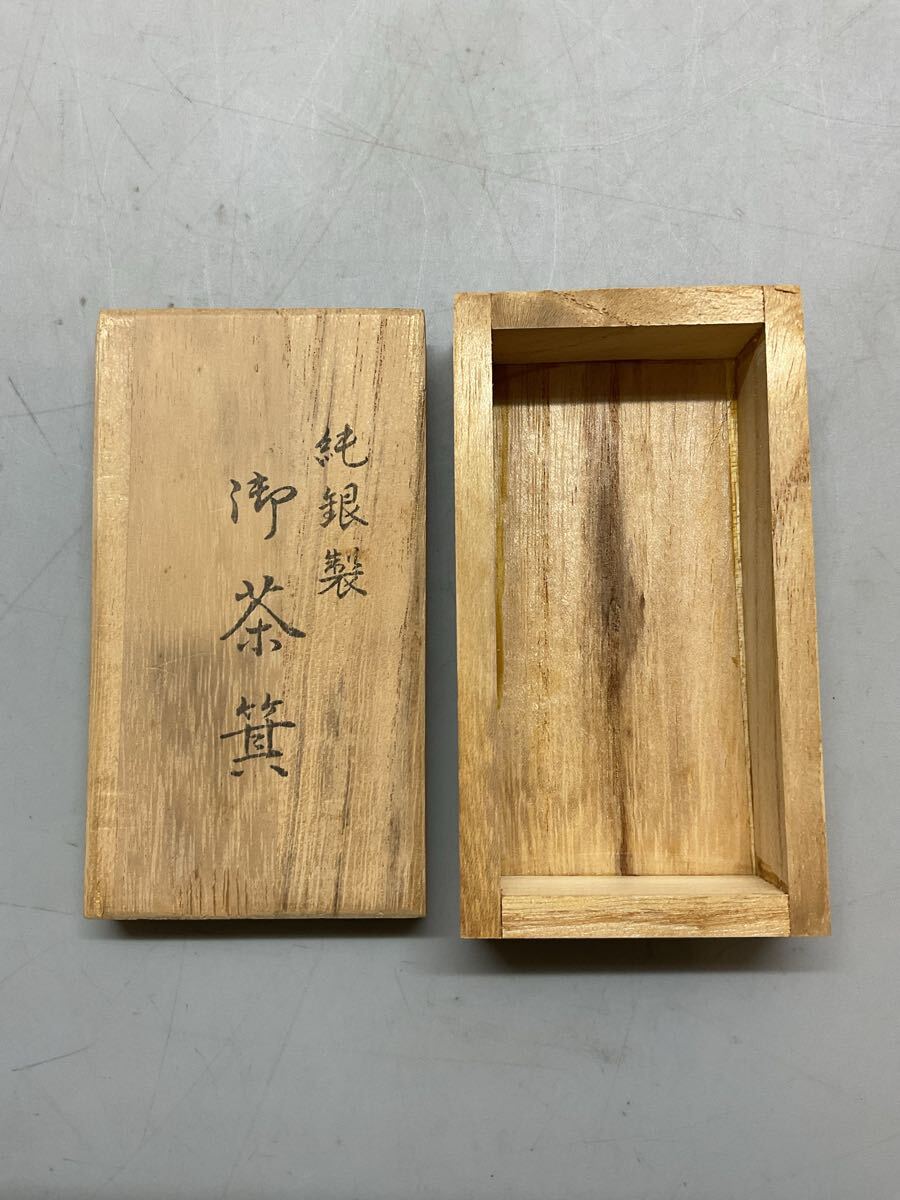 純銀製
御茶箕